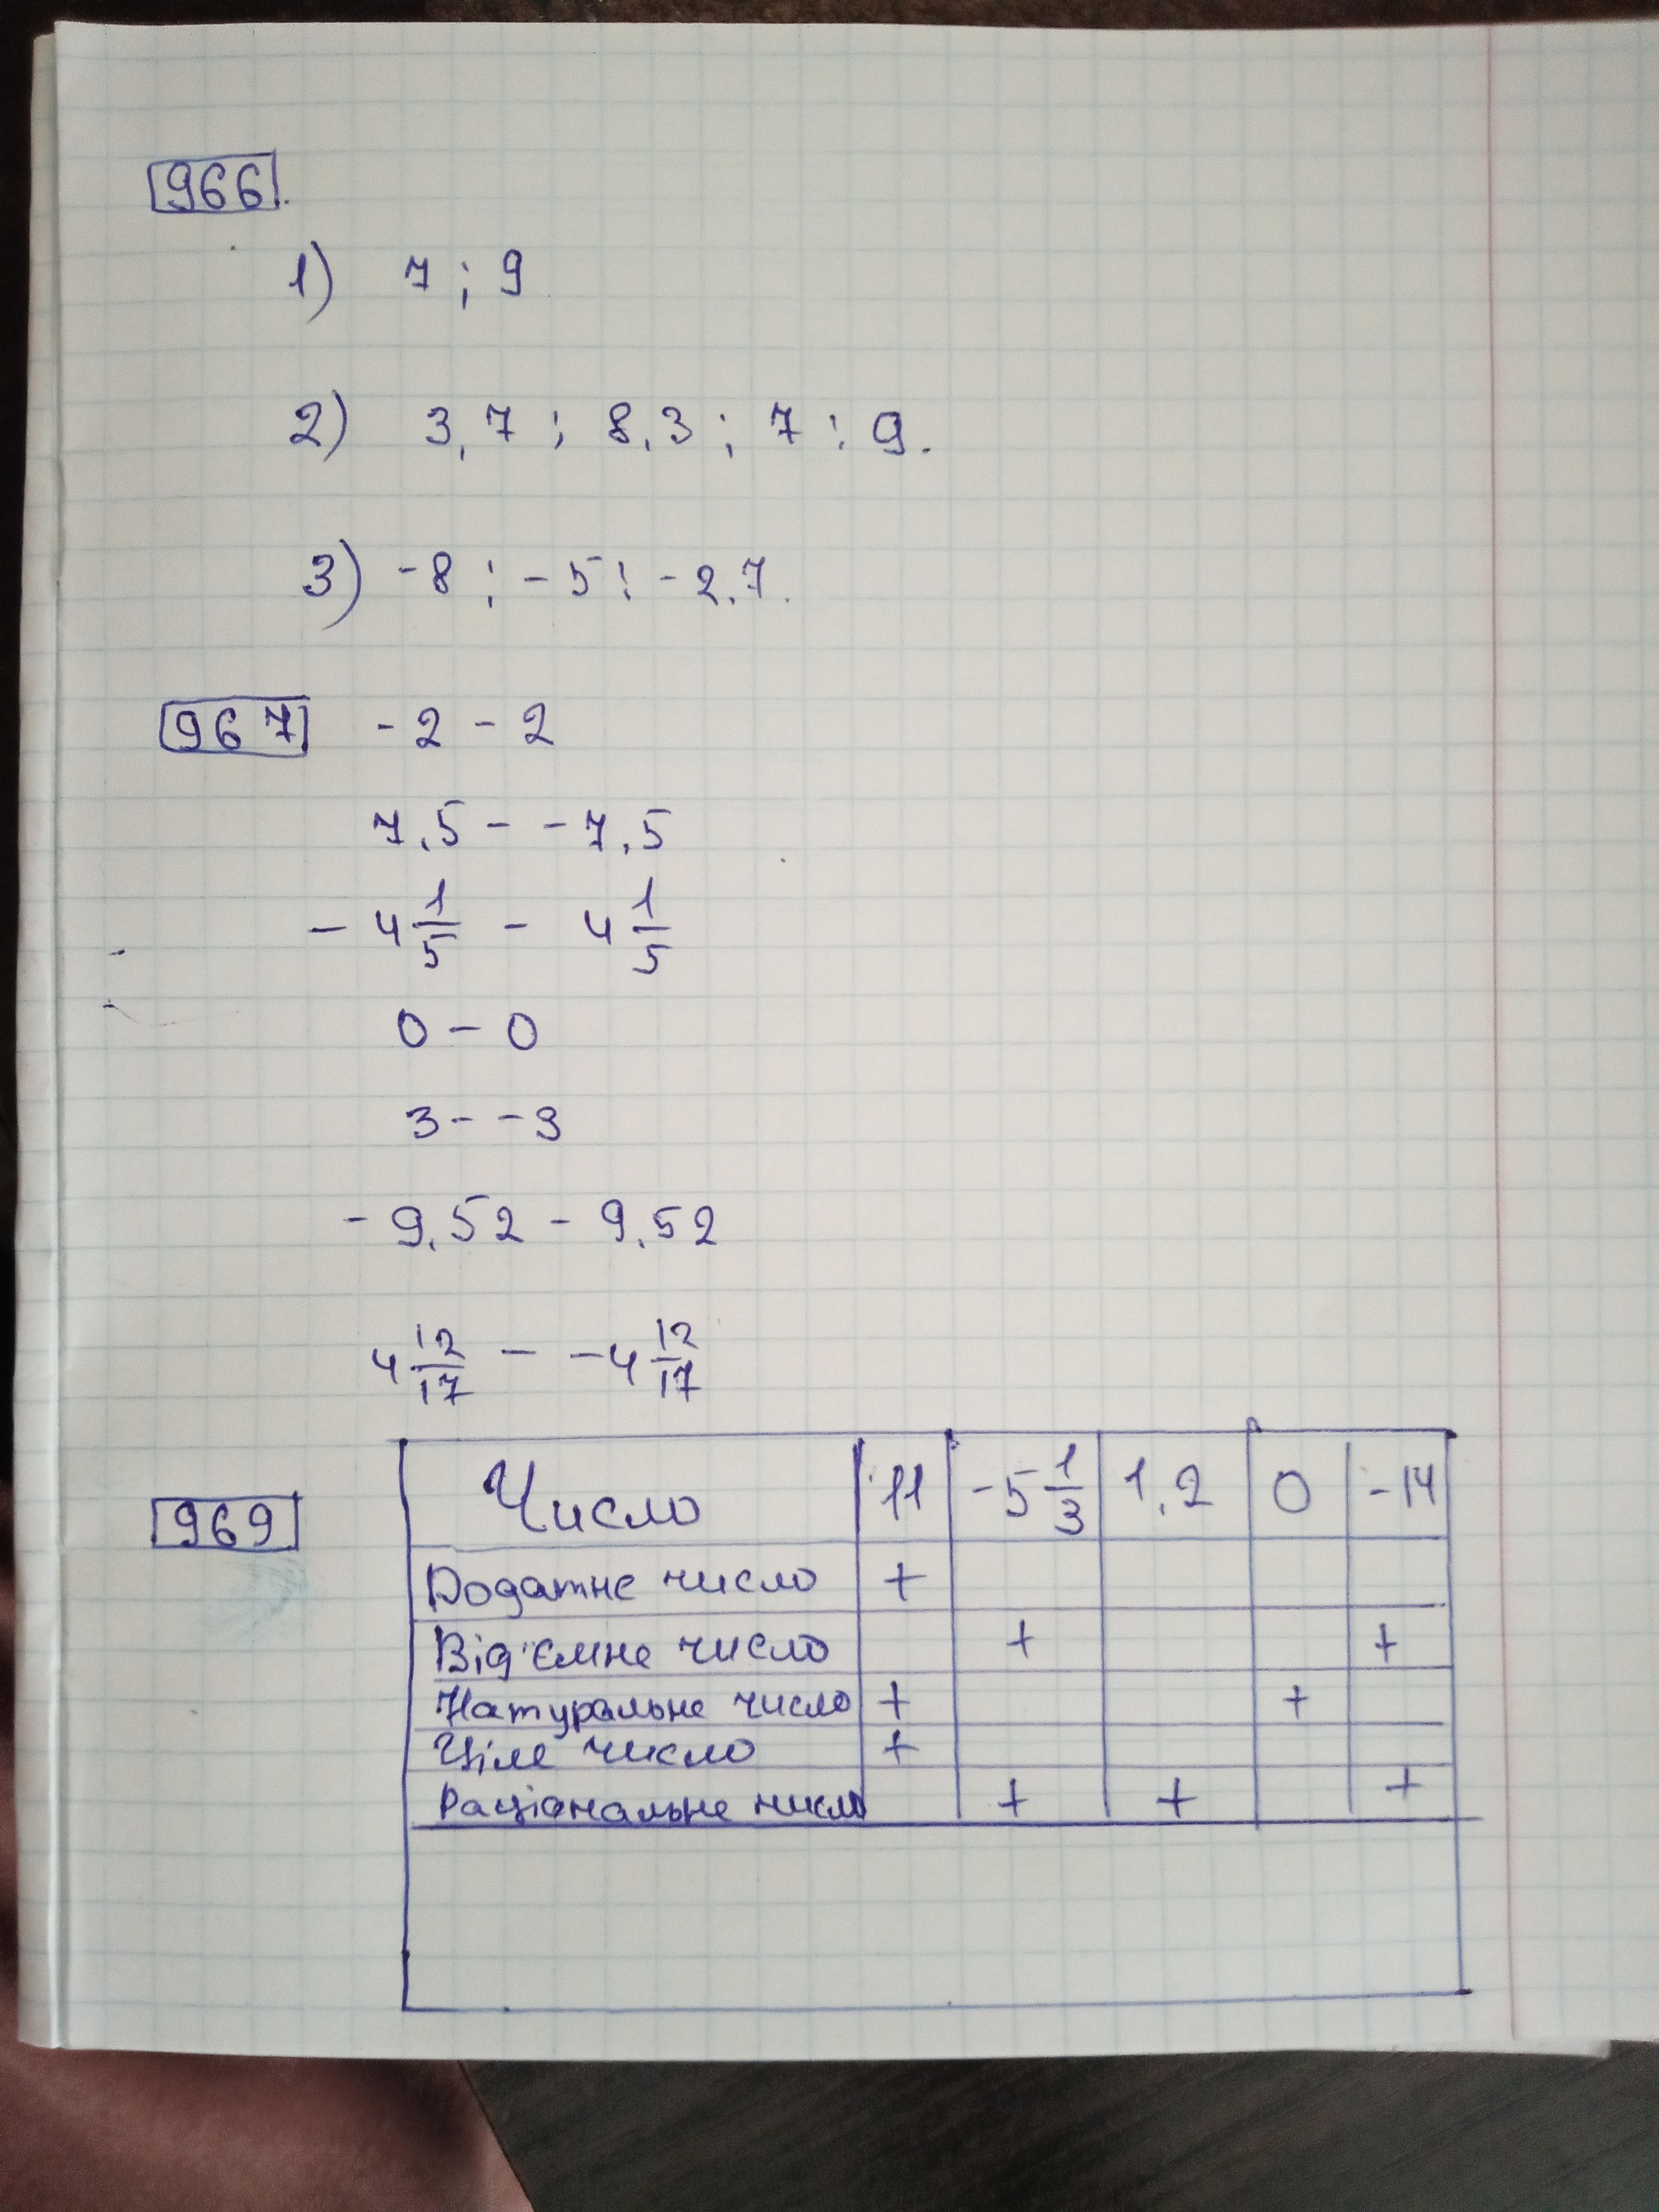 966.
1) 7 ; 9
2) 3,7 ; 8,3 ; 7 ; 9.
3) -8 ; -5 ; -2,7.
967 -2 - 2
7,5 - -7,5
-4 1/5 - 4 1/5
0 - 0
3 - -3
-9,52 - 9,52
4 12/17 - -4 12/17
969
Число 11 -5 1/3 1,2 0 -14
Додатне число +
Від'ємне число + +
Натуральне число + +
Ціле число +
Раціональне число + + +